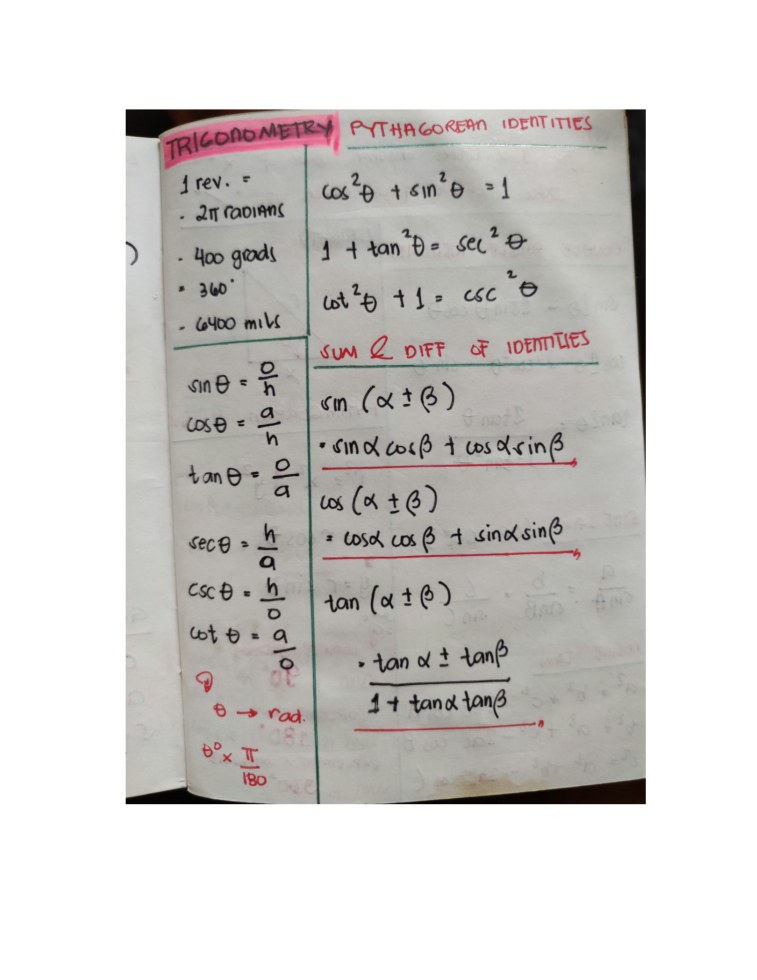 TRIGONOMETRY
1 rev. =
· 2π RADIANS
· 400 grads
· 360°
· 6400 mils
sinθ = o/h
cosθ = a/h
tanθ = o/a
secθ = h/a
cscθ = h/o
cot θ = a/o
θ → rad.
θ° x π/180
PYTHAGOREAN IDENTITIES
cos²θ + sin²θ = 1
1 + tan²θ = sec²θ
cot²θ + 1 = csc²θ
SUM & DIFF OF IDENTITIES
sin (α ± β)
· sinα cosβ + cosα sinβ
cos (α ± β)
= cosα cosβ + sinα sinβ
tan (α ± β)
· tan α ± tanβ
1 + tanα tanβ